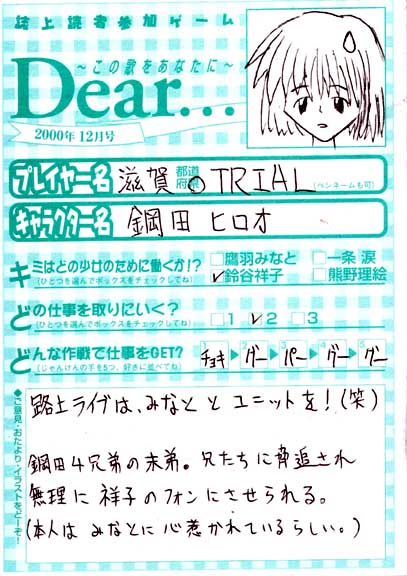 誌上読者参加ゲーム
～この歌をあなたに～
Dear...
2000年12月号
プレイヤー名 滋賀 都道府県 TRIAL (ペンネームも可)
キャラクター名 鋼田 ヒロオ
キミはどの少女のために働くか!? □鷹羽みなと □一条 涙
(ひとつを選んでボックスをチェックしてね) ✓鈴谷祥子 □熊野理絵
どの仕事を取りにいく?
(ひとつを選んでボックスをチェックしてね) □1 ✓2 □3
どんな作戦で仕事をGET? 1 チョキ ▶ 2 グー ▶ 3 パー ▶ 4 グー ▶ 5 グー
(じゃんけんの手を5つ、好きに並べてね)
◆ご意見・おたより・イラストをどーぞ!
路上ライブは、みなと と ユニットを!(笑)
鋼田4兄弟の末弟。兄たちに脅迫され
無理に 祥子のフォンにさせられる。
(本人は みなとに心惹かれているらしい。)